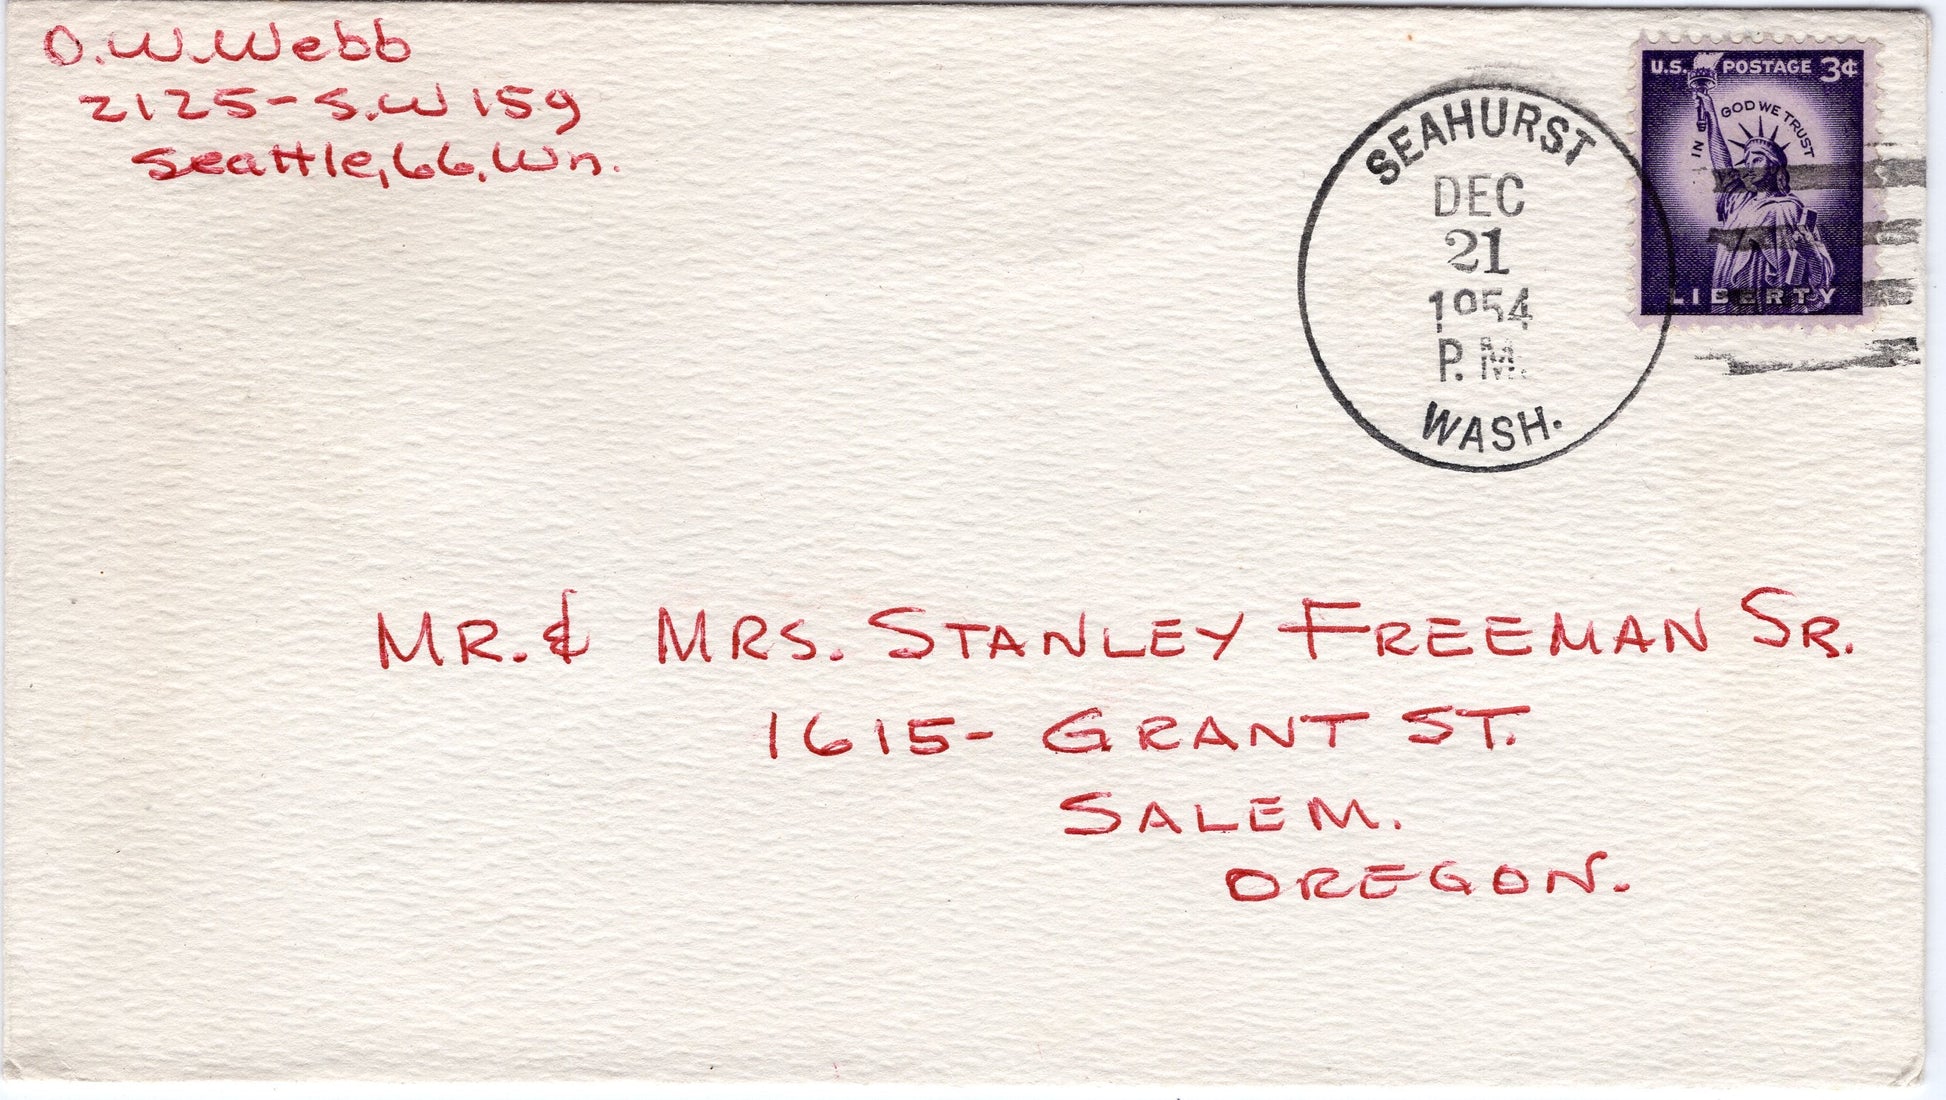 O.W.Webb
2125-S.W 159
Seattle,66,Wn.
SEAHURST
DEC
21
1954
P.M.
WASH.
U.S. POSTAGE 3¢
IN GOD WE TRUST
LIBERTY
MR. & MRS. STANLEY FREEMAN SR.
1615- GRANT ST.
SALEM.
OREGON.